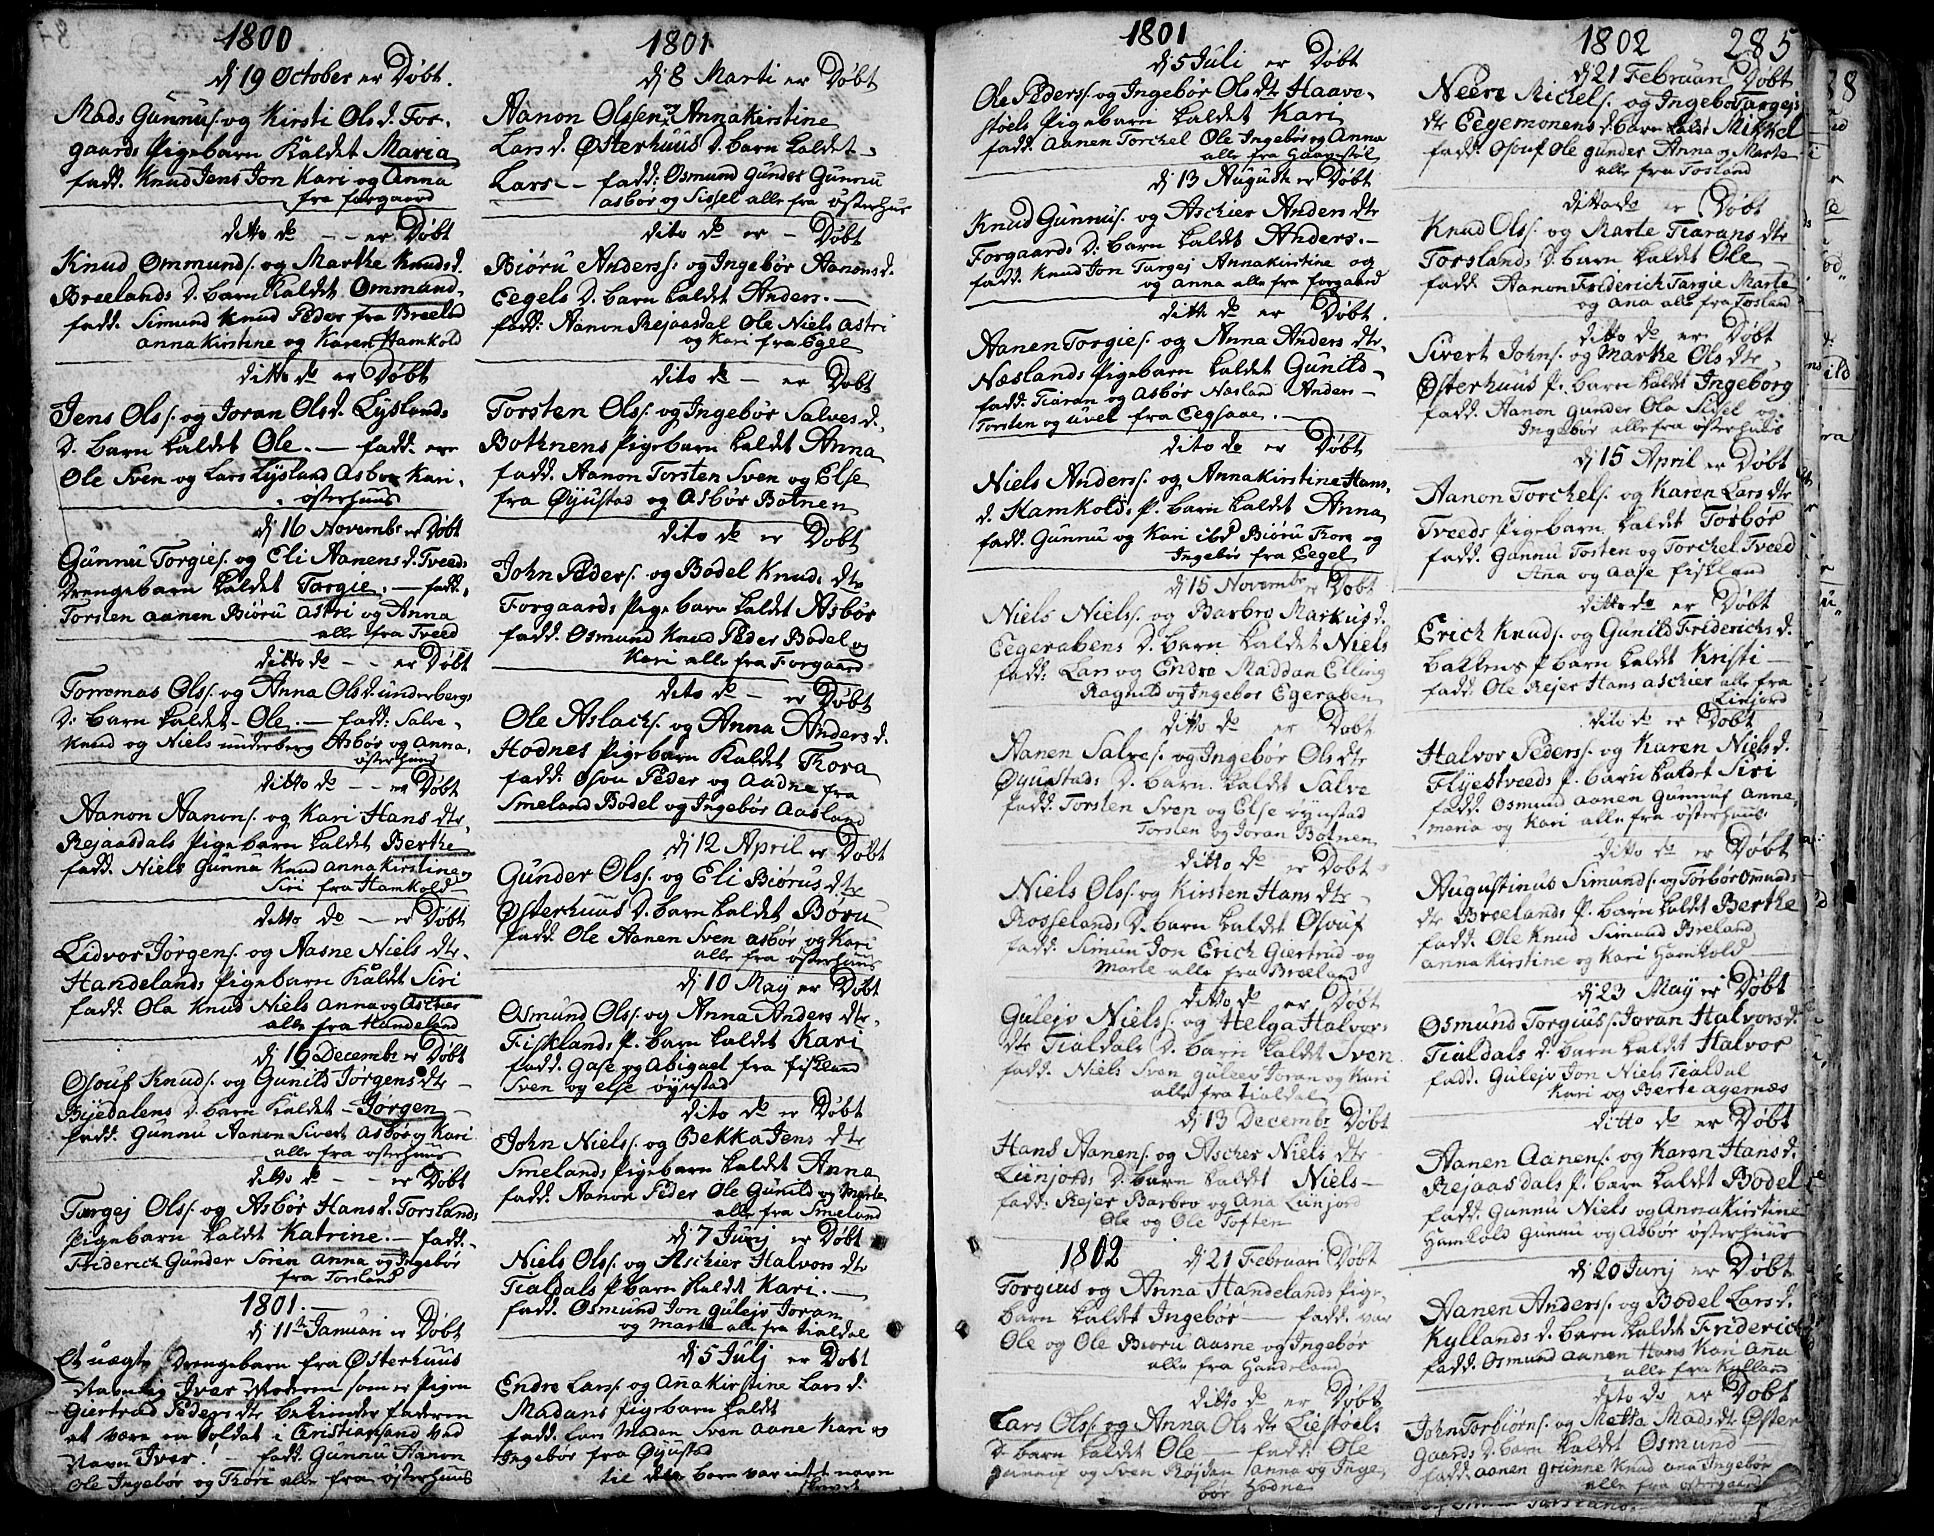 1800
dj 19 October er Døbt.
Mads Gunnus. og Kirsti Ols d. For-
gaards Pigebarn Kaldet Maria
fadd. Knud Jens Jon Kari og Anna
fra forgaard
ditto do - - er Døbt
Knud Ommunds. og Marthe Knuds d.
Breelands D. barn Kaldet Ommund.
fadd. Simund Knud Peder fra Breeland
Annakirstine og Karen Hamkold
ditto do er Døbt
Jens Ols. og Joran Ols d. Lyslands
D. barn kaldet Ole. - fadd. ere
Ole Sven og Lars Lysland Asbør Kari.
østerhuus
dj 16 Novembr er Døbt
Gunnu Torgies. og Eli Aanens d. Tveeds
Drengebarn kaldet Torgie. - fadd.
Torsten Aanen Biøru Astri og Anna
alle fra Tveed
ditto do - - er Døbt
Tommas Ols. og Anna Ols d. underbergs
D. barn kaldet - Ole. - fadd. Salve -
Knud og Niels underberg Asbør og Anna.
østerhuus
ditto do - - er Døbt
Aanon Aanons. og Kari Hans dtr.
Rejaasdals Pigebarn kaldet Berthe
fadd. Niels Gunnu Knud Annakirstine og
Siri fra Hamkold
ditto do - er Døbt
Lidvor Jørgens. og Aasne Niels dtr.
Handelands Pigebarn Kaldet Siri
fadd. Ola Knud Niels Anna og Aschier
alle fra Handeland
dj 16 Decembr er Døbt
Osouf Knuds. og Gunild Jørgens dtr -
Byedalens D. barn Kaldet - Jørgen
fadd. Gunnu Aanon Sivert Asbør og Kari
alle fra østerhuus
ditto do - - er Døbt
Targej Ols. og Asbør Hans d. Torslands
Pigebarn kaldet Katrine. - fadd.
Friderich Gunder Søren Anna og Ingebør
fra Torsland
1801.
dj 11te Januari er Døbt
Et uægte Drengebarn fra Østerhuus
Navnlig Iver Moderen som er Pigen
Giertrud Peders dtr bekiender faderen
at være en Soldat i Christiansand ved
Navn Iver! - fadd. Gunnu Aanon
Ole Ingebør og Thore alle fra østerhuus
1801
dj 8 Marti er Døbt
Aanon Olssen og Annakirstine
Lars d. Østerhuus D. barn kaldet -
Lars - fadd: Osmund Gunder Gunnu
Asbør og Sissel alle fra østerhuus
dito do er - Døbt
Biøru Anderss. og Ingebør Aanons d.
Eegels D. barn kaldet Anders. -
fadd: Aanon Rejaasdal Ole Niels Astri
og Kari fra Egel
dito do - er Døbt
Torsten Ols. og Ingebør Salves d.
Bothnens Pigebarn kaldet Anna
fadd. Aanon Torsten Sven og Else
fra Øyustad og Asbør Botnen
dito do er Døbt
John Peders. og Bodel Knuds dtr
Forgaards Pigebarn kaldet Asbør
fadd. Osmund Knud Peder Bodel og
Kari alle fra Forgaard
dito do - er Døbt
Ole Aslachs. og Anna Anders d.
Hodnes Pigebarn Kaldet Thora
fadd. Osou Peder og Aadne fra
Smeland Bodel og Ingebør Aasland
dj 12 April er Døbt
Gunder Ols. og Eli Biørus dtr
Østerhuus D. barn kaldet Børu
fadd. Ole Aanen Sven Asbør og Kari
alle fra østerhuus
dj 10 Maij er Døbt
Osmund Ols. og Anna Anders dtr.
Fisklands P. barn kaldet Kari
fadd. Gase og Abigael fra fiskland
Sven og else øynstad
dito do er Døbt
John Niels. og Bekka Jens dtr
Smelands Pigebarn kaldet Anna
fadd. Aanon Peder Ole Gunild og Marte
alle fra Smeland
dj 7 Junij er Døbt
Niels Ols. og Aschier Halvors dtr
Tialdals P. barn kaldet Kari. -
fadd. Osmund Jon Gulejv Joran
og Marte alle fra tialdal
dj 5 Julj er Døbt
Endre Lars. og Anakirstine Lars d.
Madans Pigebarn kaldt
fadd. Lars Madan Sven Aane Kari og
Ingebør fra Øyustad
til dette barn var intet navn
1801
dj 5 Juli er Døbt
Ole Peders. og Ingebør Ols dtr Haave-
støls Pigebarn kaldet Kari
fadd. Aanen Torchel Ole Ingebør og Anna
alle fra Haavestøl
dj 13 August er Døbt
Knud Gunnus. og Aschier Anders dtr
Forgaards D. barn kaldet Anders. -
fadd. Knud Jon Targej Annakirstine og
og Anna alle fra forgaard
ditto do er Døbt.
Aanen Torgies. og Anna Anders dtr.
Næslands Pigebarn kaldet Gunild -
fadd. Tiaran og Asbør Næsland Anders -
Torsten og uvel fra Eegsaae. -
dito do er Døbt
Niels Anders. og Annakirstine Hans
d. Hamkolds P. barn kaldet Anna
fadd. Gunnu og Kari ibd Biøru Thore og
Ingebør fra Eegel
dj 15 Novembr er Døbt
Niels Niels. og Barbro Markus d.
Eegerabens D. barn kaldet Niels
fadd: Lars og Endre Maddan Elling
Ragnild og Ingebør Egeraben
ditto do er Døbt
Aanen Salves. og Ingebør Ols dtr
Øyustads D. barn. kaldet Salve
fadd. Torsten Sven og Else øynstad
Torsten og Joran Botnen
ditto do er Døbt
Niels Ols. og Kirsten Hans dtr -
Rosselands D. barn kaldet Osouf
fadd. Simun Jon Erich Giertrud og
Marte alle fra Breeland
ditto do er Døbt
Gulejv Niels. og Helga Halvors
dtr Tialdals D. barn kaldet Sven
fadd. Niels Sven Gulejv Joran og Kari
alle fra tialdal
dj 13 Decembr Døbt
Hans Aanens. og Ascher Niels dtr
Liinjords D. barn kaldet Niels -
fadd: Rejer Barbro og Ana Liinjord
Ole og Ole Toften
1802 dj 21 Februari Døbt
Torgius og Anna Handelands Pige-
barn kaldet Ingebør - fadd. var
Ole og Ole Biøru Aasne og Ingebør
alle fra Handeland
ditto do er Døbt
Lars Ols. og Anna Ols dtr Liestoels
D. barn kaldet Ole - fadd. Ole
og Sven Røjdan Anna og Inge-
bør Hodne
1802 285
dj 21 Februari Døbt
Neere Michels. og Ingebør Targejs
dtr Eegemonens d. barn kaldt Mikkel
fadd. Osouf Ole Gunder Anna og Marte
alle fra Tosland
ditto do er Døbt
Knud Ols. og Marte Tiarans dtr
Torslands D. barn kaldet Ole -
fadd. Aanon Friderich Targie Marte
og Ana alle fra Tosland
ditto do er Døbt
Sivert Johns. og Marthe Ols dtr -
Østerhuus P. barn kaldt Ingeborg
fadd. Aanon Gunder Ola Sissel og
Ingebør alle fra østerhuus
dj 15 April er Døbt
Aanon Torchels. og Karen Lars dtr
Tveeds Pigebarn kaldet Torbør
fadd. Gunnu Tosten og Torchel Tveed
Ana og Aase fiskland
ditto do er Døbt
Erich Knuds. og Gunild Friderichs d.
bakkens P. barn kaldet Kristi -
fadd. Ole Rejer Hans Aschier alle fra
Liinjord
dito do er Døbt
Halvor Peders. og Karen Niels d.
Flyestveeds P. barn kaldet Siri
fadd. Osmund Aanen Gunnus Anne
maria og Kari alle fra østerhuus
ditto do er Døbt
Augustinus Simunds. og Torbør Omunds
dtr Breelands P. barn kaldt Berthe
fadd. Ole Knud Simund Breeland
Annakirstine og Kari Hamkold -
dj 23 Maij er Døbt
Osmund Torgius. Joran Halvors d.
Tialdals D. barn kaldet Halvor
fadd. Gulejv Jon Niels Tialdal
Kari og Berte agernæs
ditto do er Døbt
Aanen Aanens. og Karen Hans d.
Rejaasdals P. barn kaldet Bodel
fadd. Gunnu Niels og Annakirstine
Hamkold Gunnu og Asbør østerhuus
dj 20 Junj er Døbt
Aanen Anders. og Bodel Lars d.
Kyllands D. barn kaldet Friderich
fadd. Osmund Aanen Hans Kari Ana
alle fra Kylland
dito do er Døbt
John Torbiørns. og Metta Mads dtr Øster
gaards D. barn kaldet Osmund -
fadd. Aanen Grunne Knud Ana Ingebør
alle fra østergaard